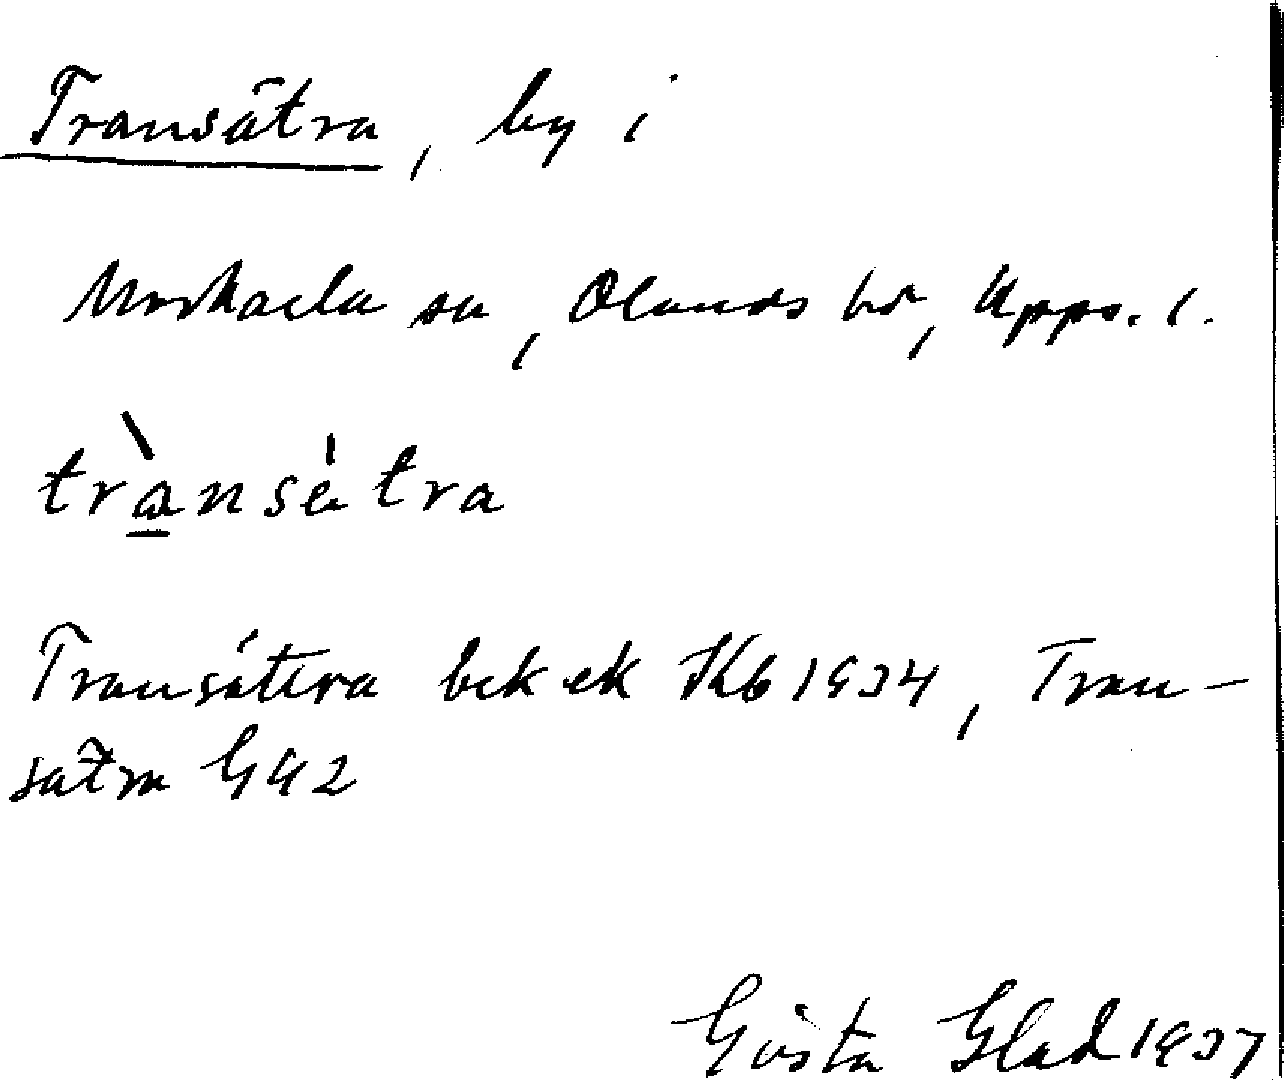 Transätra, by i
Morkarla sn, Olands hd, Upps. l.
trànsätra
Transättra bek ek Kb 1934, Tran-
sätra GK2
Gösta Glad 1937